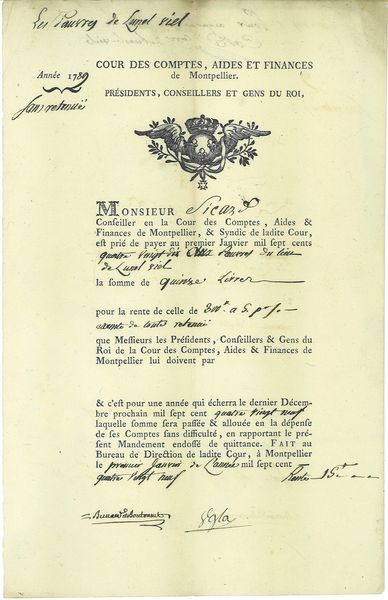 Les Pauvres de Lunel viel
COUR DES COMPTES, AIDES ET FINANCES
Année 1789
de Montpellier.
sans retenuë
PRÉSIDENTS, CONSEILLERS ET GENS DU ROI,
MONSIEUR Sicard
Conseiller en la Cour des Comptes, Aides &
Finances de Montpellier, & Syndic de ladite Cour,
est prié de payer au premier Janvier mil sept cents
quatre vingt dix aux Pauvres du lieu
de Lunel viel
la somme de quinze Livres
pour la rente de celle de 300# a 5 p%
exempte de toute retenuë
que Messieurs les Présidents, Conseillers & Gens du
Roi de la Cour des Comptes, Aides & Finances de
Montpellier lui doivent par
& c'est pour une année qui écherra le dernier Décem-
bre prochain mil sept cent quatre vingt neuf
laquelle somme sera passée & allouée en la dépense
de ses Comptes sans difficulté, en rapportant le pré-
sent Mandement endossé de quittance. FAIT au
Bureau de Direction de ladite Cour, à Montpellier
le premier Janvier de L'année mil sept cent
quatre vingt neuf
15#